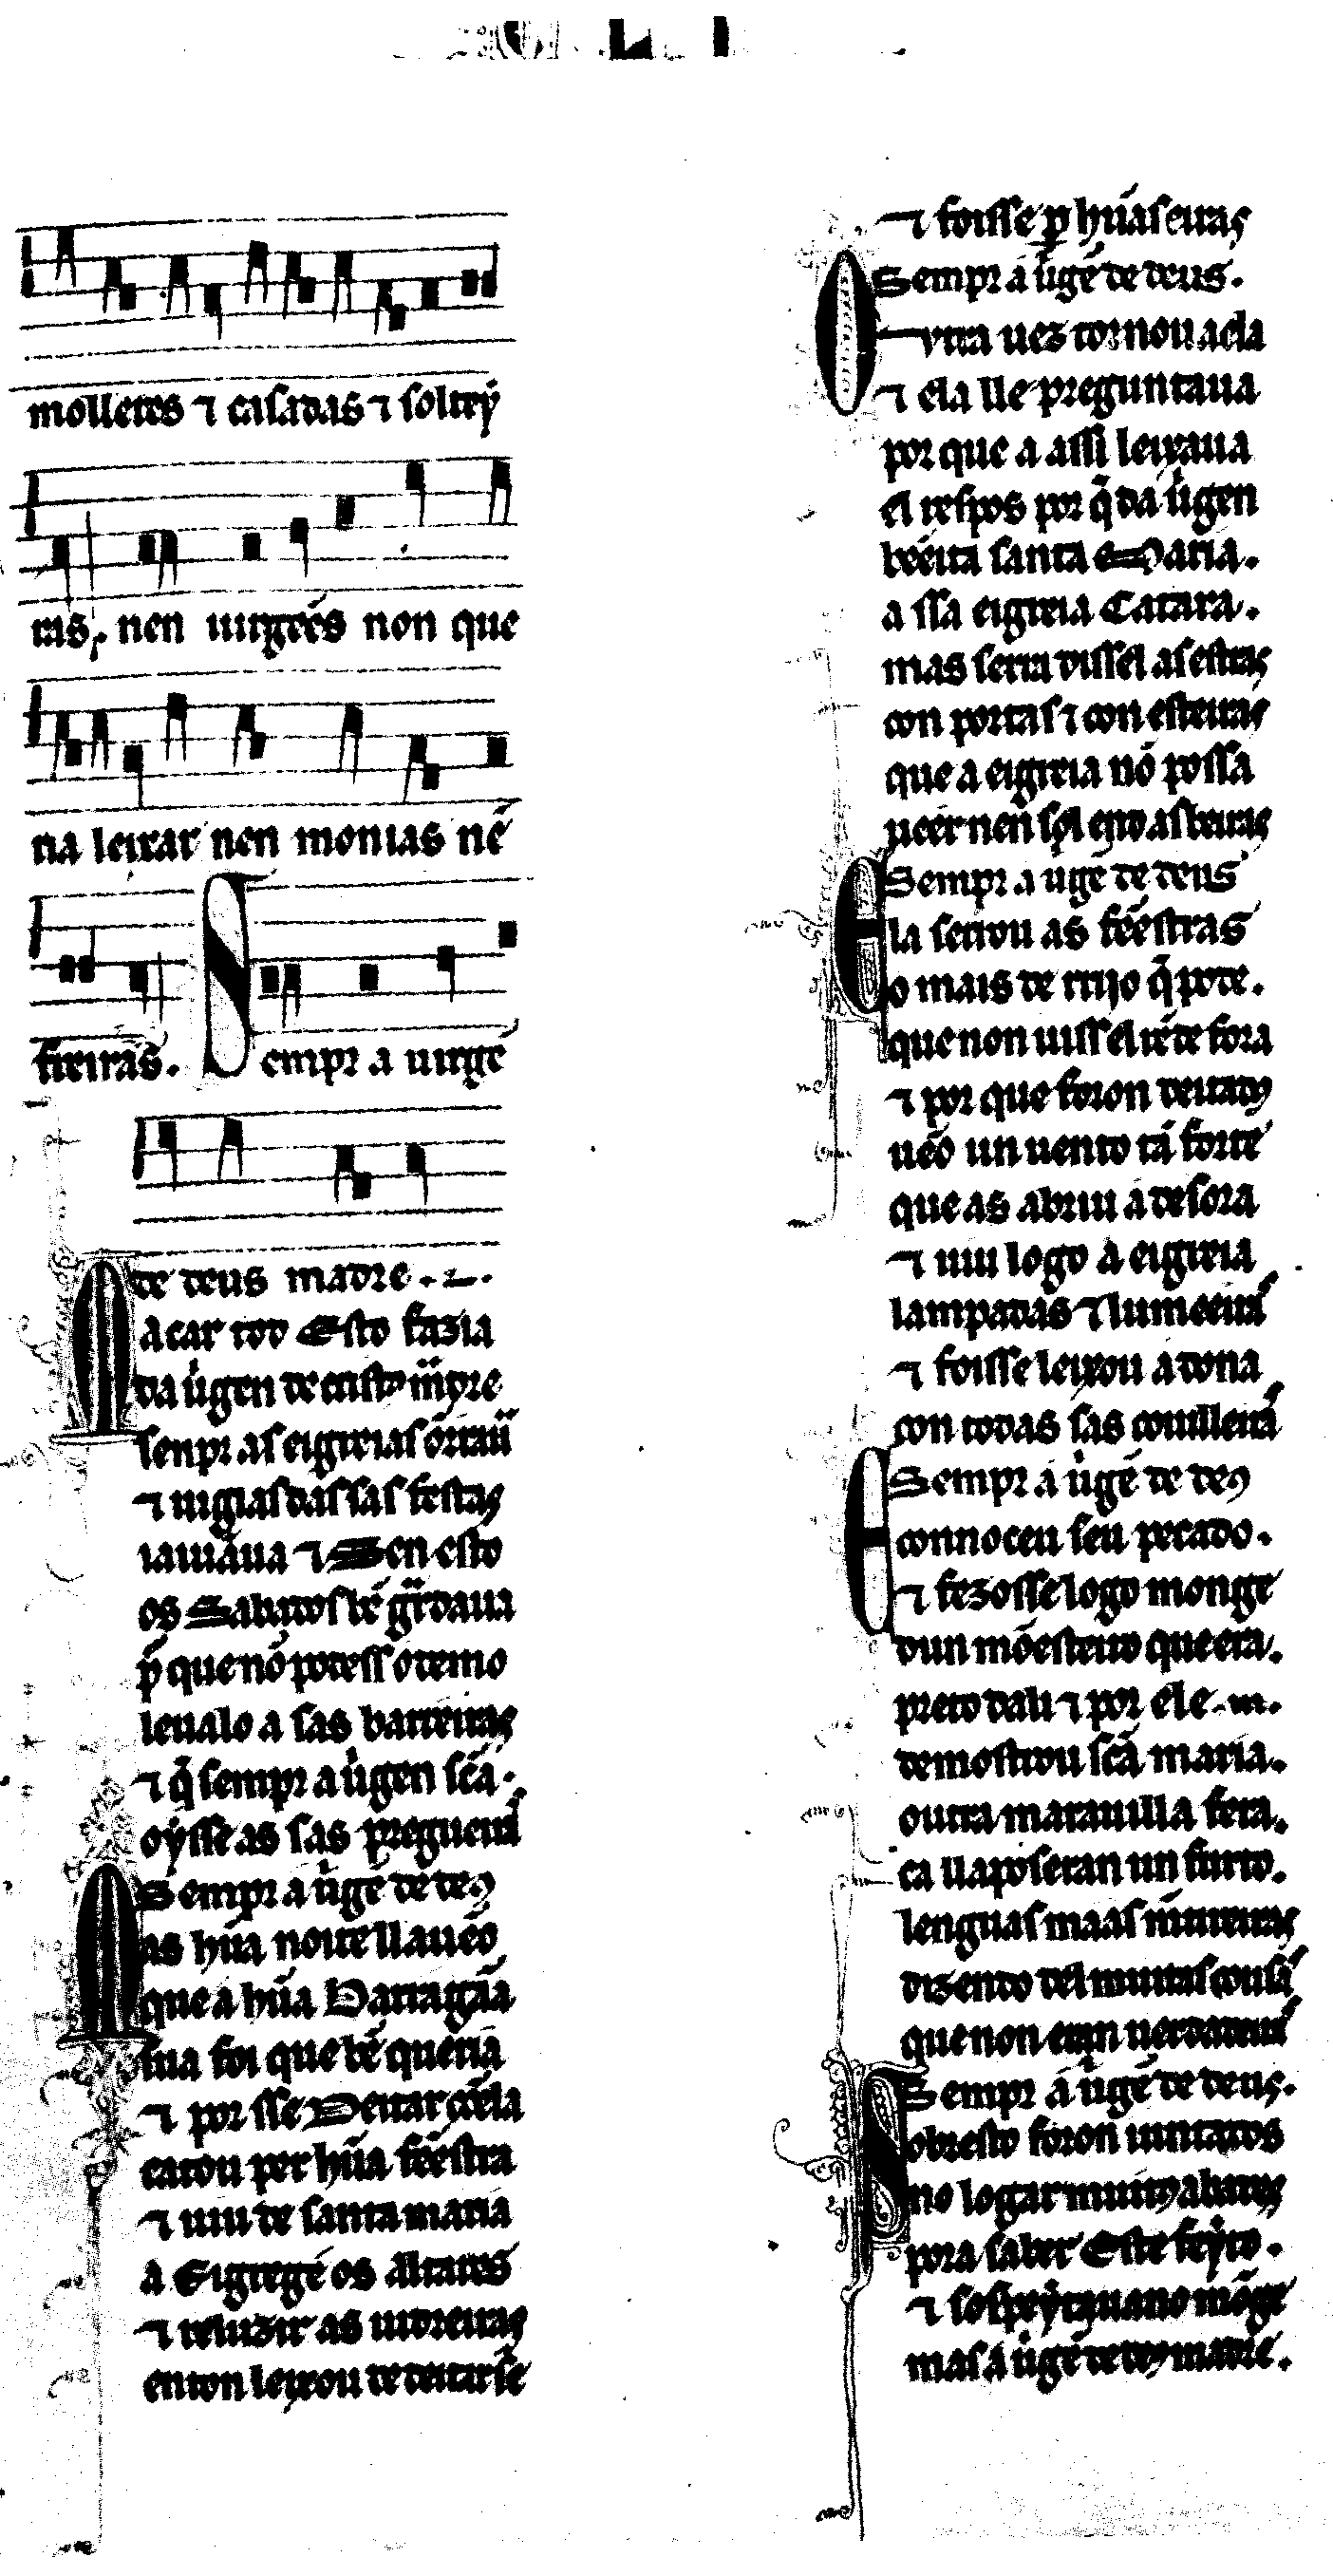 C L I
molleres ⁊ casadas ⁊ solteỹ
ras. nen uirgẽes non que
ria leixar nen monias nẽ
freiras. Sempr a uirgẽ
de deus madre.
Macar tod Esto fazia
da uirgen de
senpr as eigreias
⁊ uigias das sas festas
iaiũaua ⁊ Ben esto
os Sabados bẽ
que nõ podess o demo
leualo a sas barreiras
⁊ q̃ sempr a uigen sc̃a.
oỹsse as sas pregueirã
Sempr a uigẽ de deꝯ
Mas hũa noite ll auẽo
que a hũa Barragãa
sua foi que bẽ queria
⁊ por sse Deitar cõ ela
catou per hũa fẽestra
⁊ uiu de santa maria
a Eigrege os altares
⁊ reluzir as uidreiras
enton leixou de deitar se
⁊ foisse ꝑ hũas euas
Sempr a uigẽ de deus.
Outra uez tornou a ela
⁊ ela lle preguntaua
por que a assi leixaua
el respos por q̃ da uigen
bẽeita santa Maria.
a ssa eigreia Catara.
mas serra diss el as estras
con portas ⁊ con esteiras
que a eigreia nõ possa
ueer nen sol end astreiras
Sempr a uigẽ de deus
Ela serrou as fẽestras
o mais de rrijo q̃ pode.
que non uiss el rẽ de fora
⁊ por que foron deitadꝯ
uẽo un uento tã forte
que as abriu a desora
⁊ uiu logo a eigreia
lampadas ⁊ lumeeirã
⁊ foisse leixou a dona
con todas sas conlleirã
Sempr a uigẽ de deꝯ
E connoceu seu pecado.
⁊ fezosse logo monge
dun mõesteiro que era.
preto dali ⁊ por ele.
demostrou sc̃a maria.
outra marauilla fera.
ca ll aposeran un furto.
lenguas maas mentireiras
dizendo del muitas cousã
que non eran uerdadeirã
Sempr a uigẽ de deus.
Sobresto foron iuntados
no logar muitꝯ abades
pora saber Este feyto.
⁊ sospeyta uan o mõge
mas a uigẽ de deꝯ madre.